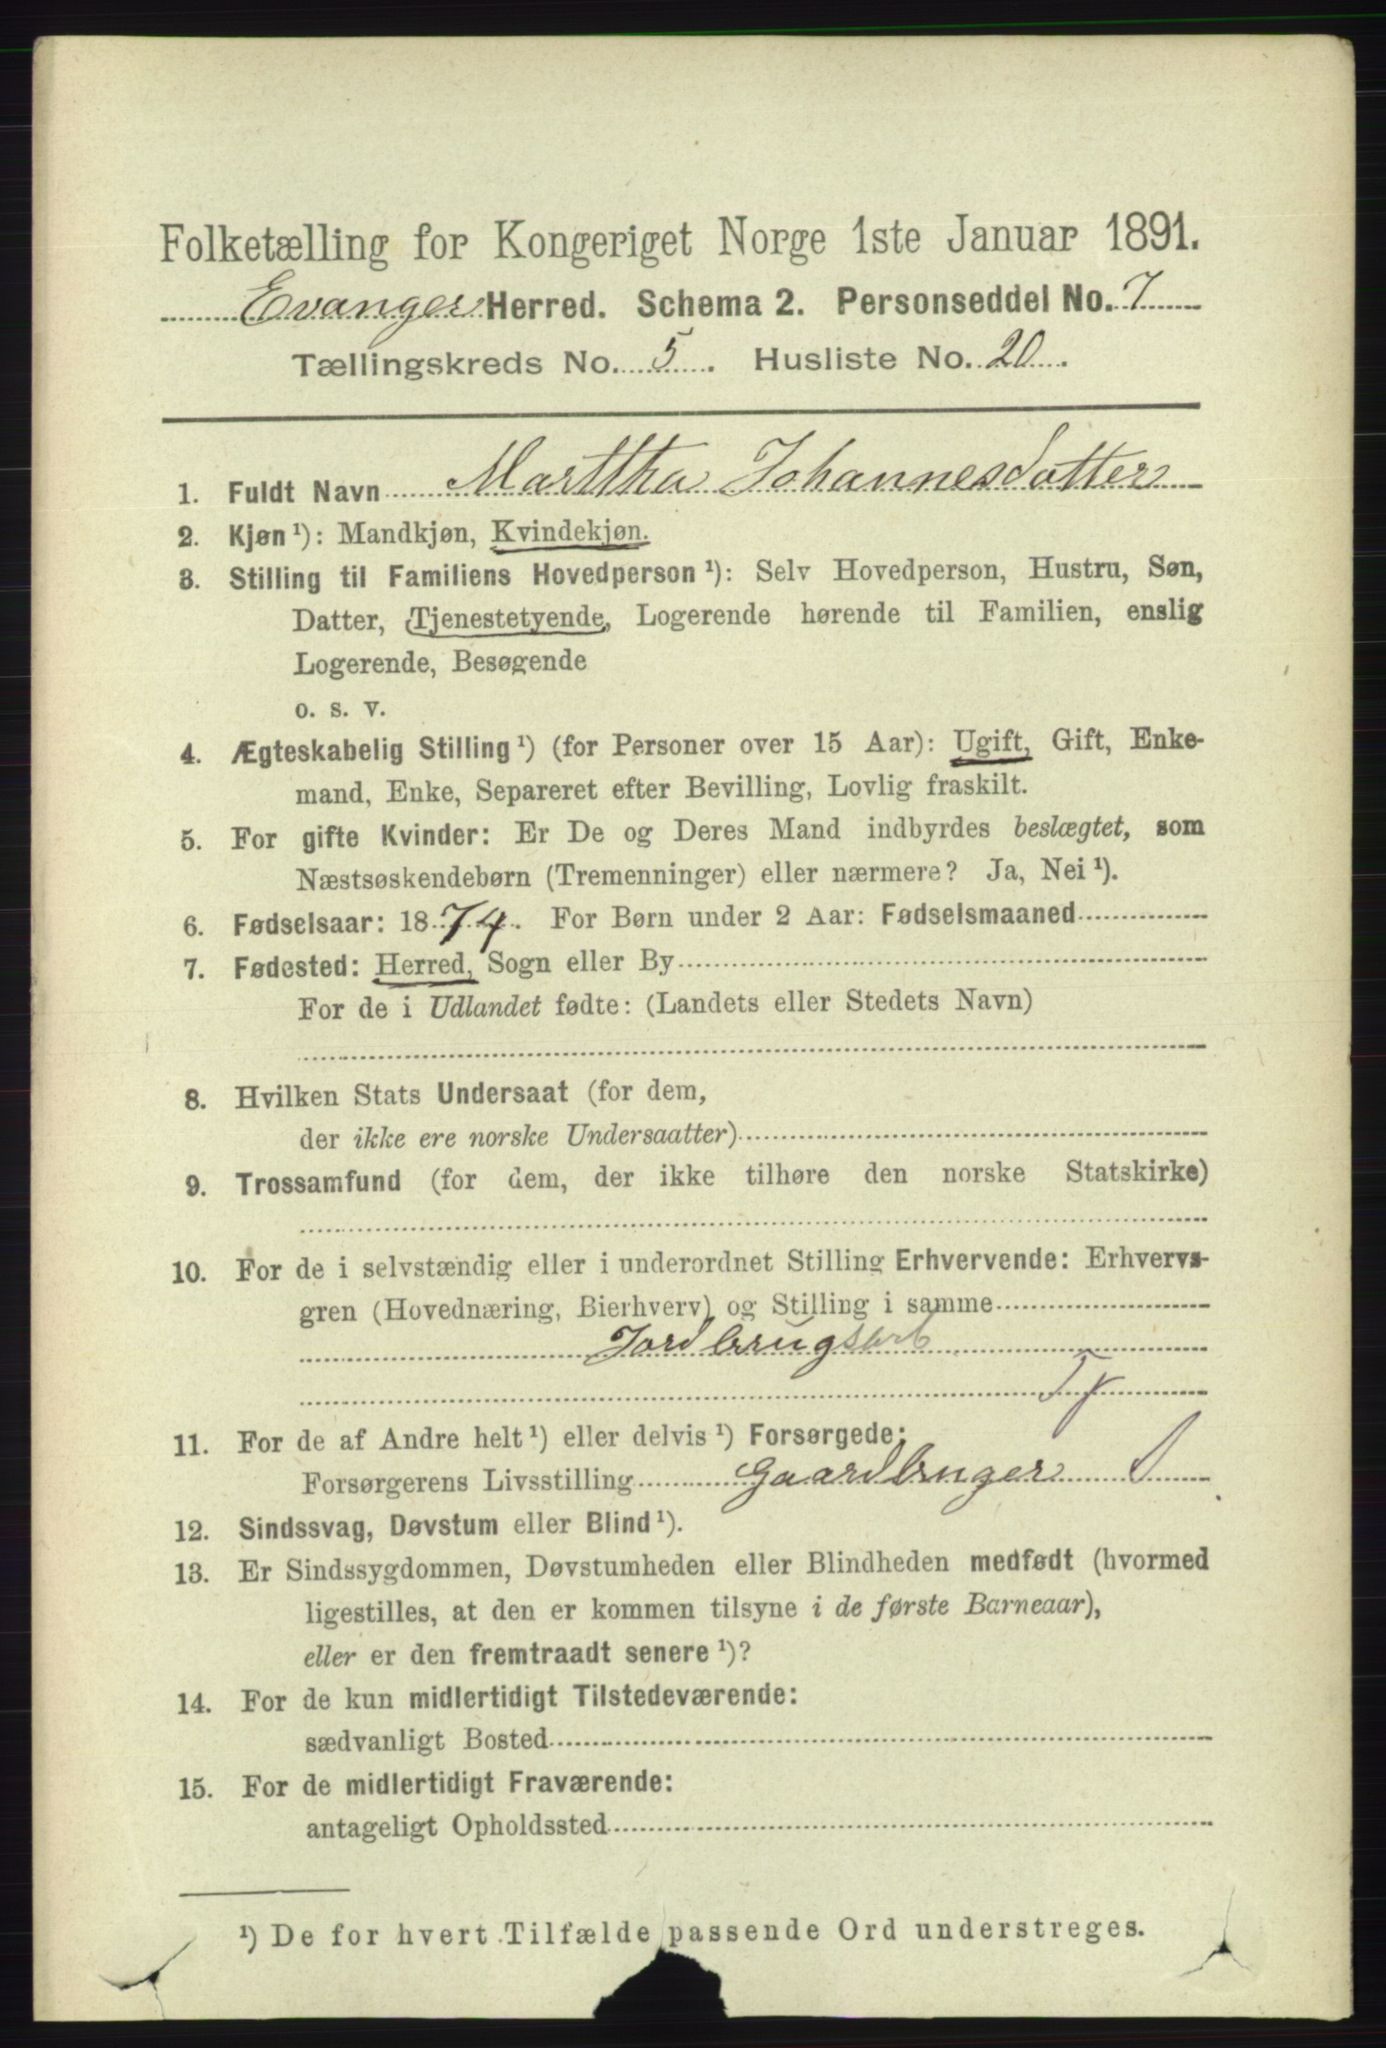 Folketælling for Kongeriget Norge 1ste Januar 1891.
Evanger Herred. Schema 2. Personseddel No. 7
Tællingskreds No. 5. Husliste No. 20.
1. Fuldt Navn Marttha Johannesdatter
2. Kjøn ¹): Mandkjøn, Kvindekjøn.
3. Stilling til Familiens Hovedperson ¹): Selv Hovedperson, Hustru, Søn,
Datter, Tjenestetyende, Logerende hørende til Familien, enslig
Logerende, Besøgende
o. s. v.
4. Ægteskabelig Stilling ¹) (for Personer over 15 Aar): Ugift, Gift, Enke-
mand, Enke, Separeret efter Bevilling, Lovlig fraskilt.
5. For gifte Kvinder: Er De og Deres Mand indbyrdes beslægtet, som
Næstsøskendebørn (Tremenninger) eller nærmere? Ja, Nei ¹).
6. Fødselsaar: 1874. For Børn under 2 Aar: Fødselsmaaned
7. Fødested: Herred, Sogn eller By
For de i Udlandet fødte: (Landets eller Stedets Navn)
8. Hvilken Stats Undersaat (for dem,
der ikke ere norske Undersaatter)
9. Trossamfund (for dem, der ikke tilhøre den norske Statskirke)
10. For de i selvstændig eller i underordnet Stilling Erhvervende: Erhvervs-
gren (Hovednæring, Bierhverv) og Stilling i samme
Jordbrugsarb
Tj
11. For de af Andre helt ¹) eller delvis ¹) Forsørgede:
Forsørgerens Livsstilling Gaardbruger
12. Sindssvag, Døvstum eller Blind ¹).
13. Er Sindssygdommen, Døvstumheden eller Blindheden medfødt (hvormed
ligestilles, at den er kommen tilsyne i de første Barneaar),
eller er den fremtraadt senere ¹)?
14. For de kun midlertidigt Tilstedeværende:
sædvanligt Bosted
15. For de midlertidigt Fraværende:
antageligt Opholdssted
¹) De for hvert Tilfælde passende Ord understreges.